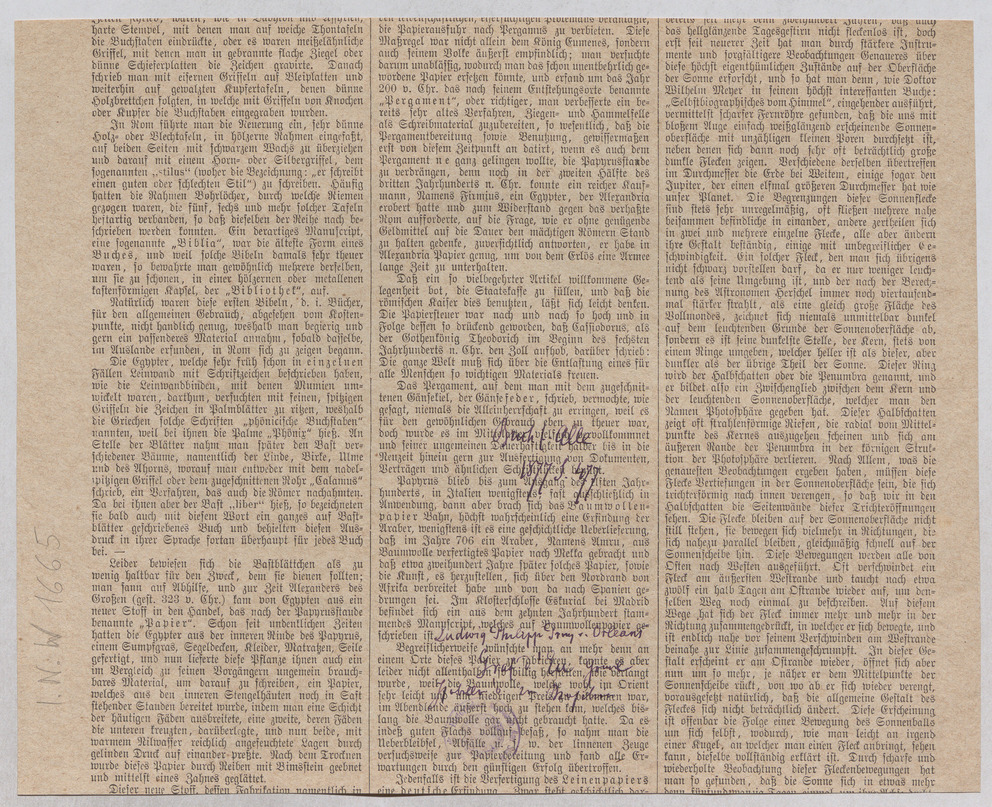 harte Stempel, mit denen man auf weiche Thontafeln
die Buchstaben eindrückte, oder es waren meißelähnliche
Griffel, mit denen man in gebrannte flache Ziegel oder
dünne Schieferplatten die Zeichen gravirte. Danach
schrieb man mit eisernen Griffeln auf Bleiplatten und
weiterhin auf gewalzten Kupfertafeln, denen dünne
Holzbrettchen folgten, in welche mit Griffeln von Knochen
oder Kupfer die Buchstaben eingegraben wurden.
In Rom führte man die Neuerung ein, sehr dünne
Holz- oder Blechtafeln, in hölzerne Rahmen eingefaßt,
auf beiden Seiten mit schwarzem Wachs zu überziehen
und darauf mit einem Horn- oder Silbergriffel, dem
sogenannten „stilus“ (woher die Bezeichnung: „er schreibt
einen guten oder schlechten Stil“) zu schreiben. Häufig
hatten die Rahmen Bohrlöcher, durch welche Riemen
gezogen waren, die fünf, sechs und mehr solcher Tafeln
heftartig verbanden, so daß dieselben der Reihe nach be-
schrieben werden konnten. Ein derartiges Manuscript,
eine sogenannte „Biblia“, war die älteste Form eines
Buches, und weil solche Bibeln damals sehr theuer
waren, so bewahrte man gewöhnlich mehrere derselben,
um sie zu schonen, in einer hölzernen oder metallenen
kastenförmigen Kapsel, der „Bibliothek“, auf.
Natürlich waren diese ersten Bibeln, d. i. Bücher,
für den allgemeinen Gebrauch, abgesehen vom Kosten-
punkte, nicht handlich genug, weshalb man begierig und
gern ein passenderes Material annahm, sobald dasselbe,
im Auslande erfunden, in Rom sich zu zeigen begann.
Die Egypter, welche sehr früh schon in einzelnen
Fällen Leinwand mit Schriftzeichen beschrieben haben,
wie die Leinwandbinden, mit denen Mumien um-
wickelt waren, darthun, versuchten mit feinen, spitzigen
Griffeln die Zeichen in Palmblätter zu ritzen, weshalb
die Griechen solche Schriften „phönicische Buchstaben“
nannten, weil bei ihnen die Palme „Phönix“ hieß. An
Stelle der Blätter nahm man später den Bast ver-
schiedener Bäume, namentlich der Linde, Birke, Ulme
und des Ahorns, worauf man entweder mit dem nadel-
spitzigen Griffel oder dem zugeschnittenen Rohr „Calamus“
schrieb, ein Verfahren, das auch die Römer nachahmten.
Da bei ihnen aber der Bast „liber“ hieß, so bezeichneten
sie bald auch mit diesem Wort ein ganzes auf Bast-
blätter geschriebenes Buch und behielten diesen Aus-
druck in ihrer Sprache fortan überhaupt für jedes Buch
bei. —
Leider bewiesen sich die Bastblättchen als zu
wenig haltbar für den Zweck, dem sie dienen sollten;
man sann auf Abhilfe, und zur Zeit Alexanders des
Großen (gest. 323 v. Chr.) kam von Egypten aus ein
neuer Stoff in den Handel, das nach der Papyrusstaude
benannte „Papier“. Schon seit undenklichen Zeiten
hatten die Egypter aus der inneren Rinde des Papyrus,
einem Sumpfgras, Segeldecken, Kleider, Matratzen, Seile
gefertigt, und nun lieferte diese Pflanze ihnen auch ein
im Vergleich zu seinen Vorgängern ungemein brauch-
bares Material, um darauf zu schreiben, ein Papier,
welches aus den inneren Stengelhäuten noch in Saft
stehender Stauden bereitet wurde, indem man eine Schicht
der häutigen Fäden ausbreitete, eine zweite, deren Fäden
die unteren kreuzten, darüberlegte, und nun beide, mit
warmem Nilwasser reichlich angefeuchtete Lagen durch
gelinden Druck auf einander preßte. Nach dem Trocknen
wurde dieses Papier durch Reiben mit Bimsstein geebnet
und mittelst eines Zahnes geglättet.
Dieser neue Stoff, dessen Fabrikation namentlich in
die Papierausfuhr nach Pergamus zu verbieten. Diese
Maßregel war nicht allein dem König Eumenes, sondern
auch seinem Volke äußerst empfindlich; man versuchte
darum unablässig, wodurch man das schon unentbehrlich ge-
wordene Papier ersetzen könnte, und erfand um das Jahr
200 v. Chr. das nach seinem Entstehungsorte benannte
„Pergament“, oder richtiger, man verbesserte ein be-
reits sehr altes Verfahren, Ziegen- und Hammelfelle
als Schreibmaterial zuzubereiten, so wesentlich, daß die
Pergamentbereitung sowie Benutzung, gewissermaßen
erst von diesem Zeitpunkt an datirt, wenn es auch dem
Pergament nie ganz gelingen wollte, die Papyrusstaude
zu verdrängen, denn noch in der zweiten Hälfte des
dritten Jahrhunderts n. Chr. konnte ein reicher Kauf-
mann, Namens Firmius, ein Egypter, der Alexandria
erobert hatte und zum Widerstand gegen das verhaßte
Rom aufforderte, auf die Frage, wie er ohne genügende
Geldmittel auf die Dauer den mächtigen Römern Stand
zu halten gedenke, zuversichtlich antworten, er habe in
Alexandria Papier genug, um von dem Erlös eine Armee
lange Zeit zu unterhalten.
Daß ein so vielbegehrter Artikel willkommene Ge-
legenheit bot, die Staatskasse zu füllen, und daß die
römischen Kaiser dies benutzten, läßt sich leicht denken.
Die Papiersteuer war nach und nach so hoch und in
Folge dessen so drückend geworden, daß Cassiodorus, als
der Gothenkönig Theodorich im Beginn des sechsten
Jahrhunderts n. Chr. den Zoll aufhob, darüber schrieb:
Die ganze Welt muß sich über die Entlastung eines für
alle Menschen so wichtigen Materials freuen.
Das Pergament, auf dem man mit dem zugeschnit-
tenen Gänsekiel, der Gänsefeder, schrieb, vermochte, wie
gesagt, niemals die Alleinherrschaft zu erringen, weil es
für den gewöhnlichen Gebrauch eben zu theuer war,
doch wurde es im
und seiner ungemeinen Dauerhaftigkeit halber bis in die
Neuzeit hinein gern zur Ausfertigung von Dokumenten,
Verträgen und ähnlichen
Papyrus blieb bis zum Ausgang des elften Jahr-
hunderts, in Italien wenigstens fast ausschließlich in
Anwendung, dann aber brach sich das Baumwollen-
papier Bahn, höchst wahrscheinlich eine Erfindung der
Araber, wenigstens ist es eine geschichtliche Ueberlieferung,
daß im Jahre 706 ein Araber, Namens Amru, aus
Baumwolle verfertigtes Papier nach Mekka gebracht und
daß etwa zweihundert Jahre später solches Papier, sowie
die Kunst, es herzustellen, sich über den Nordrand von
Afrika verbreitet habe und von da nach Spanien ge-
drungen sei. Im Klosterschlosse Eskurial bei Madrid
befindet sich ein aus dem zehnten Jahrhundert stam-
mendes Manuscript, welches auf Baumwollenpapier ge-
schrieben ist. Ludwig Philipp v. Orleans
Begreiflicherweise wünschte man an mehr denn an
einem Orte dieses Papier
leider nicht allenthalben
verlangt, weil die Baumwolle, welche wohl im Orient
sehr leicht und zu niedrigem Preis war,
im Abendlande äußerst hoch zu stehen kam, welches bis-
lang die Baumwolle gar nicht gebraucht hatte. Da es
indeß guten Flachs vollauf besaß, so nahm man die
Ueberbleibsel, Abfälle u. s. w. der linnenen Zeuge
versuchsweise zur Papierbereitung und fand alle Er-
wartungen durch den günstigen Erfolg übertroffen.
Jedenfalls ist die Verfertigung des Leinenpapiers
eine deutsche Erfindung. Zwar steht geschichtlich dar-
bereits seit mehr denn zweihundert Jahren, daß auch
das hellglänzende Tagesgestirn nicht fleckenlos ist, doch
erst seit neuerer Zeit hat man durch stärkere Instru-
mente und sorgfältigere Beobachtungen Genaueres über
diese höchst eigenthümlichen Zustände auf der Oberfläche
der Sonne erforscht, und so hat man denn, wie Doktor
Wilhelm Meyer in seinem höchst interessanten Buche:
„Selbstbiographisches vom Himmel“, eingehender ausführt,
vermittelst scharfer Fernröhre gefunden, daß die uns mit
bloßem Auge einfach weißglänzend erscheinende Sonnen-
oberfläche mit unzähligen kleinen Poren durchsetzt ist,
neben denen sich dann noch sehr oft beträchtlich große
dunkle Flecken zeigen. Verschiedene derselben übertreffen
in Durchmesser die Erde bei Weitem, einige sogar den
Jupiter, der einen elfmal größeren Durchmesser hat wie
unser Planet. Die Begrenzungen dieser Sonnenflecke
sind stets sehr unregelmäßig, oft fließen mehrere nahe
beisammen befindliche in einander, andere zertheilen sich
in zwei und mehrere einzelne Flecke, alle aber ändern
ihre Gestalt beständig, einige mit unbegreiflicher Ge-
schwindigkeit. Ein solcher Fleck, den man sich übrigens
nicht schwarz vorstellen darf, da er nur weniger leuch-
tend als seine Umgebung ist, und der nach der Berech-
nung des Astronomen Herschel immer noch viertausend-
mal stärker strahlt, als eine gleich große Fläche des
Vollmondes, zeichnet sich niemals unmittelbar dunkel
auf dem leuchtenden Grunde der Sonnenoberfläche ab,
sondern es ist seine dunkelste Stelle, der Kern, stets von
einem Ringe umgeben, welcher heller ist als dieser, aber
dunkler als der übrige Theil der Sonne. Dieser Ring
wird der Halbschatten oder die Penumbra genannt, und
er bildet also ein Zwischenglied zwischen dem Kern und
der leuchtenden Sonnenoberfläche, welcher man den
Namen Photosphäre gegeben hat. Dieser Halbschatten
zeigt oft strahlenförmige Riefen, die radial vom Mittel-
punkte des Kernes auszugehen scheinen und sich am
äußeren Rande der Penumbra in der körnigen Struk-
tion der Photosphäre verlieren. Nach Allem, was die
genauesten Beobachtungen ergeben haben, müssen diese
Flecke Vertiefungen in der Sonnenoberfläche sein, die sich
trichterförmig nach innen verengen, so daß wir in den
Halbschatten die Seitenwände dieser Trichteröffnungen
sehen. Die Flecke bleiben auf der Sonnenoberfläche nicht
still stehen, sie bewegen sich vielmehr in Richtungen, die
sich nahezu parallel bleiben, gleichmäßig schnell auf der
Sonnenscheibe hin. Diese Bewegungen werden alle von
Osten nach Westen ausgeführt. Oft verschwindet ein
Fleck am äußersten Westrande und taucht nach etwa
zwölf ein halb Tagen am Ostrande wieder auf, um den-
selben Weg noch einmal zu beschreiben. Auf diesem
Wege hat sich der Fleck immer mehr und mehr in der
Richtung zusammengedrückt, in welcher er sich bewegte, und
ist endlich nahe vor seinem Verschwinden am Westrande
beinahe zur Linie zusammengeschrumpft. In dieser Ge-
stalt erscheint er am Ostrande wieder, öffnet sich aber
nun um so mehr, je näher er dem Mittelpunkte der
Sonnenscheibe rückt, von wo ab er sich wieder verengt,
vorausgesetzt natürlich, daß die allgemeine Gestalt des
Fleckes sich nicht beträchtlich ändert. Diese Erscheinung
ist offenbar die Folge einer Bewegung des Sonnenballs
um sich selbst, wodurch, wie man leicht an irgend
einer Kugel, an welcher man einen Fleck anbringt, sehen
kann, dieselbe vollständig erklärt ist. Durch scharfe und
wiederholte Beobachtung dieser Fleckenbewegungen hat
man so gefunden, daß die Sonne sich in etwas mehr
N. W. 1665